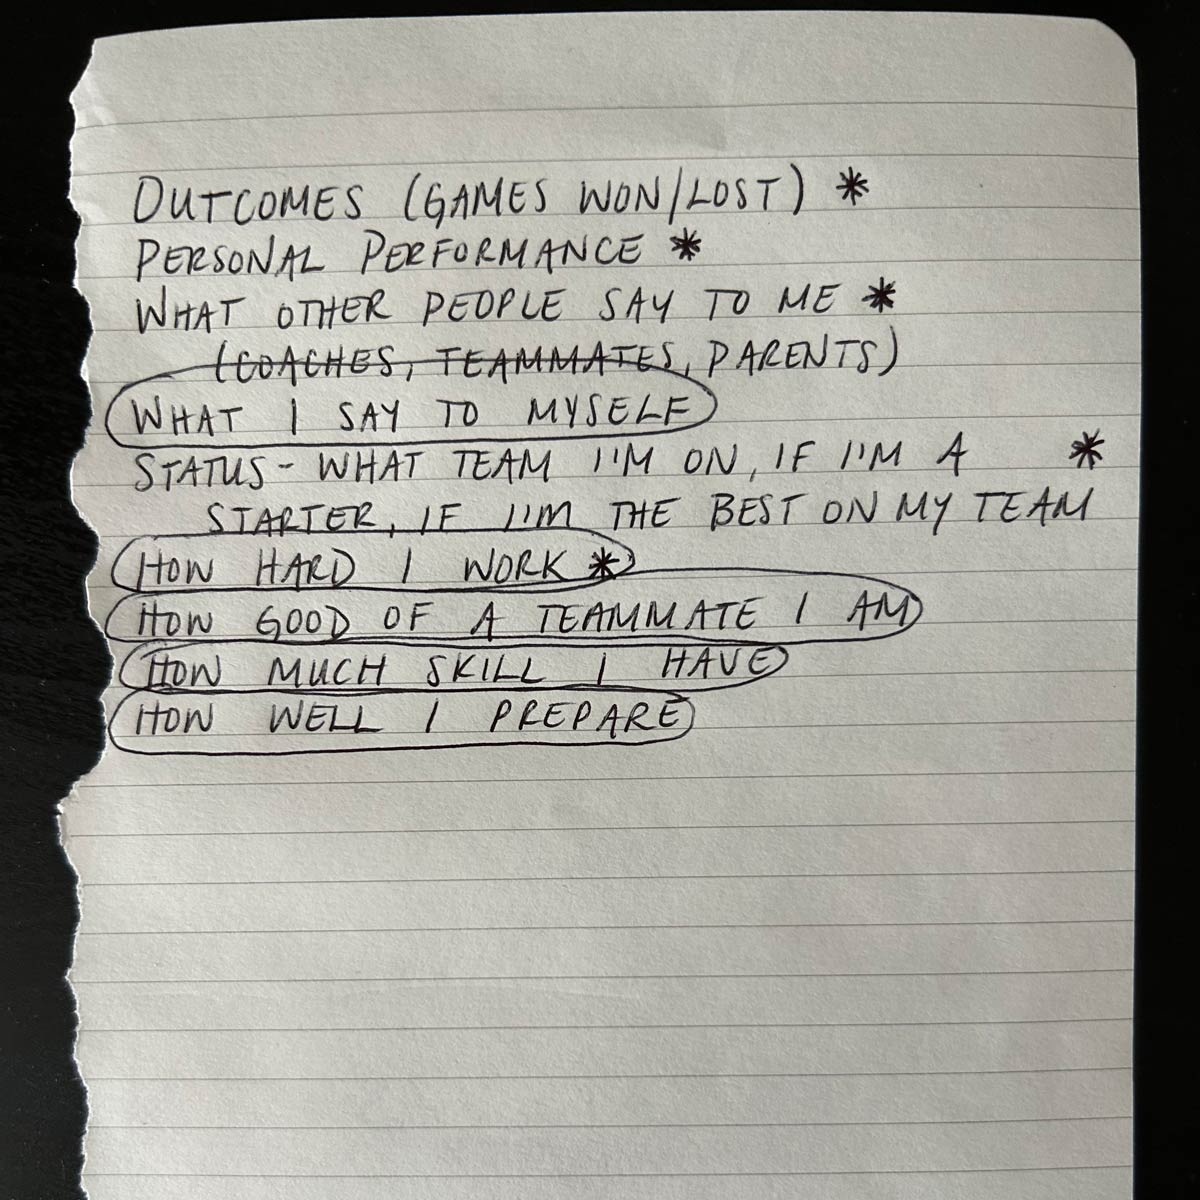 OUTCOMES (GAMES WON/LOST) *
PERSONAL PERFORMANCE *
WHAT OTHER PEOPLE SAY TO ME *
(COACHES, TEAMMATES, PARENTS)
WHAT I SAY TO MYSELF
STATUS - WHAT TEAM I'M ON, IF I'M A *
STARTER, IF I'M THE BEST ON MY TEAM
HOW HARD I WORK *
HOW GOOD OF A TEAMMATE I AM
HOW MUCH SKILL I HAVE
HOW WELL I PREPARE